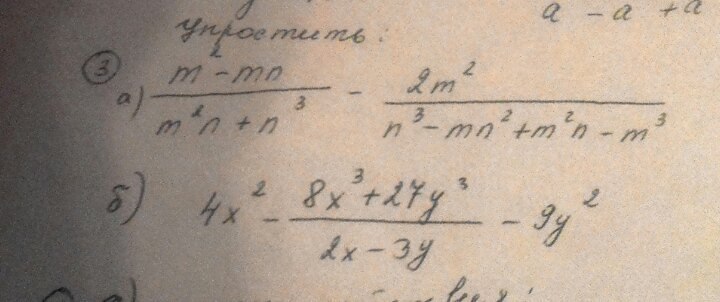 a - a + a
упростить:
③ а) (m² - mn)/(m²n + n³) - 2m²/(n³ - mn² + m²n - m³)
б) 4x² - (8x³ + 27y³)/(2x - 3y) - 9y²